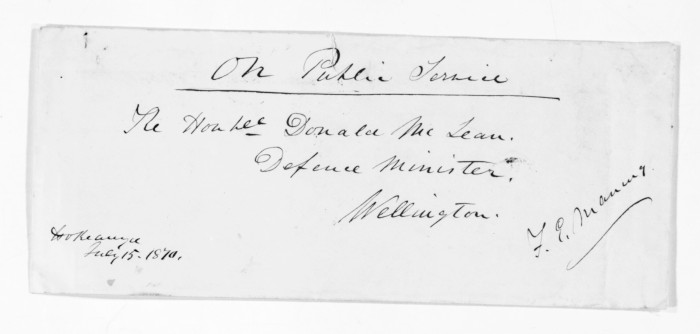 On Public Service
The Honble. Donald McLean.
Defence Minister.
Wellington.
F. E. Maning.
Hokianga
July 15. 1870.